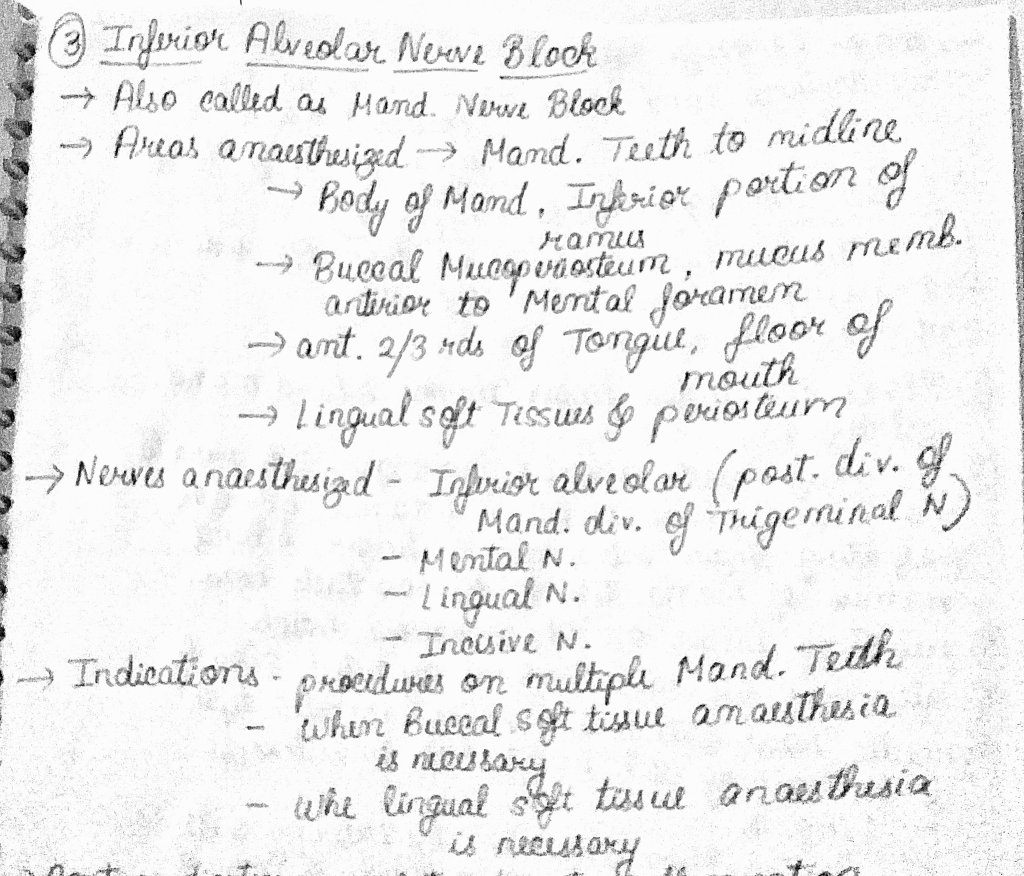 ③ Inferior Alveolar Nerve Block
→ Also called as Mand. Nerve Block
→ Areas anaesthesized → Mand. Teeth to midline
→ Body of Mand, Inferior portion of
ramus
→ Buccal Mucoperiosteum, mucus memb.
anterior to Mental foramen
→ ant. 2/3 rds of Tongue, floor of
mouth
→ Lingual soft Tissues & periosteum
→ Nerves anaesthesized - Inferior alveolar (post. div. of
Mand. div. of Trigeminal N)
- Mental N.
- Lingual N.
- Incisive N.
→ Indications - procedures on multiple Mand. Teeth
- When Buccal soft tissue anaesthesia
is necessary
- Whe lingual soft tissue anaesthesia
is necessary